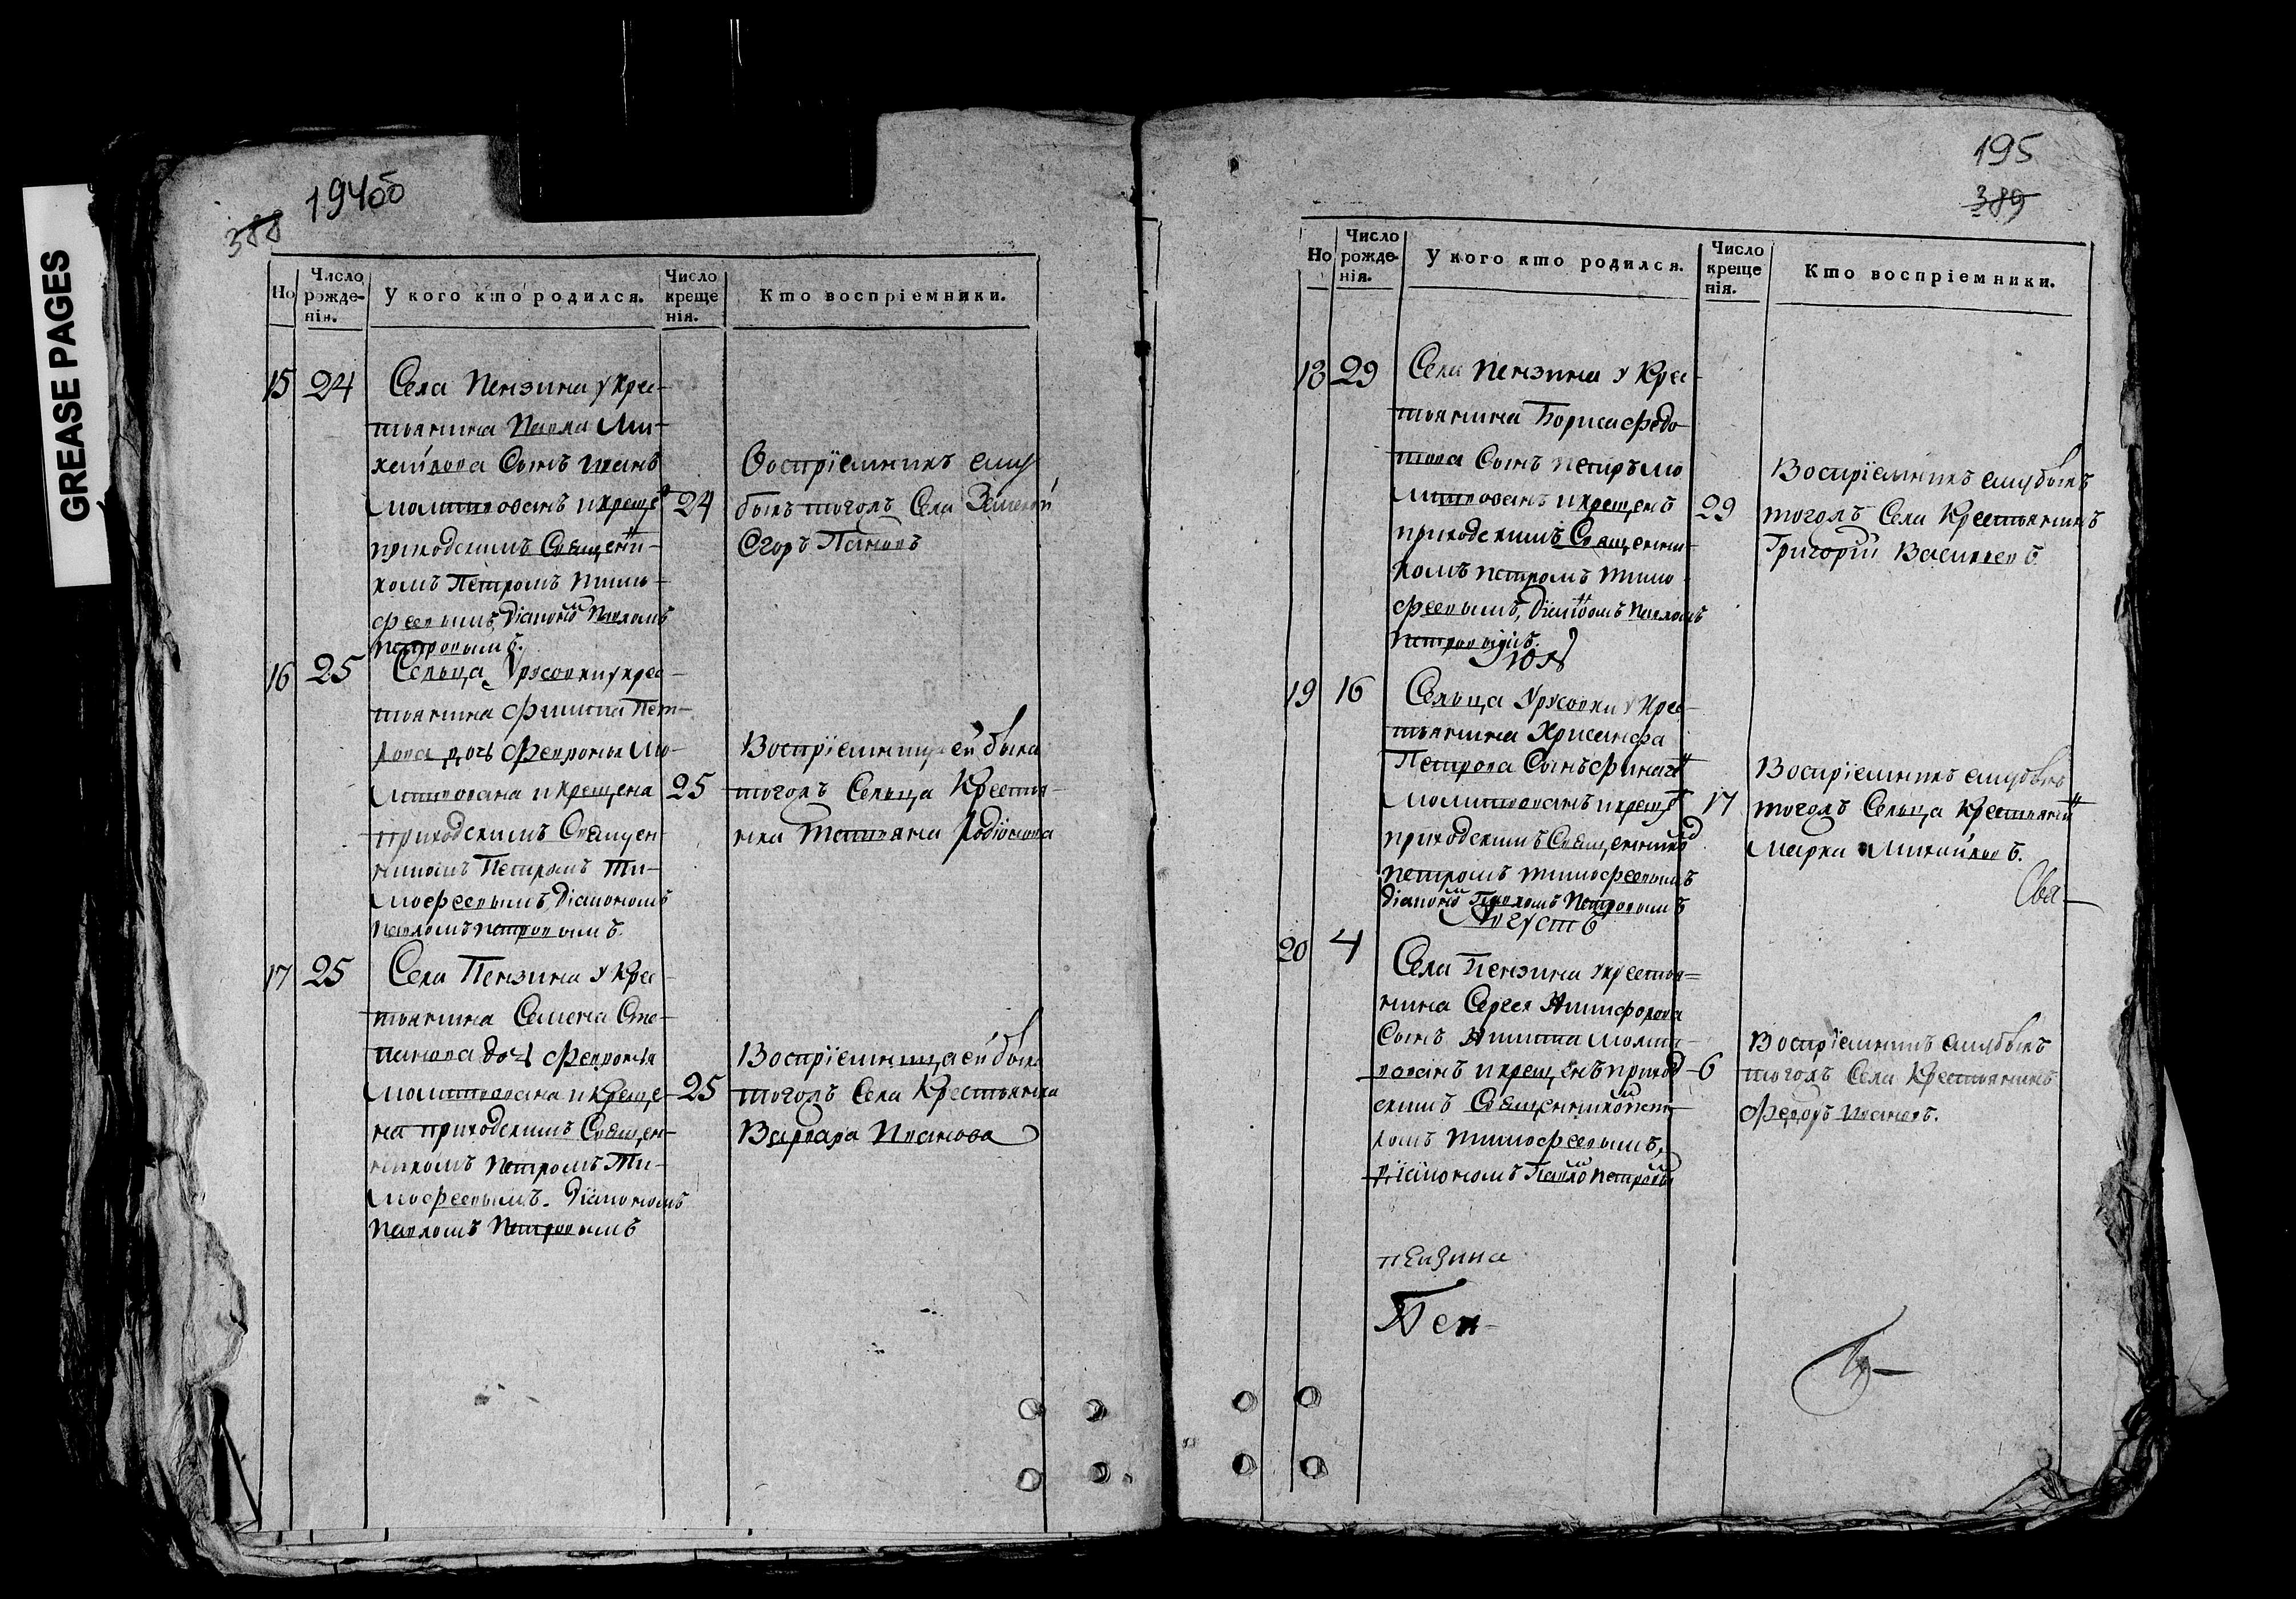 GREASE PAGES
194об
388
Но
Число рожде-нія.
У кого кто родился.
Число креще нія.
Кто воспріемники.
15 24 Села Пензина у Крес-
тьянина Павла Ми-
хайлова Сынъ иванъ
молитвованъ и креще
приходскимъ Священи-
комъ Петромъ тимо-
феевымъ, діаконо Павломъ
петровымъ.
24
Воспріемникъ ему
былъ тогожъ Села
Егоръ Панов
16 25 Сельца Урусовки у крес-
тьянина филипа Пет-
рова дочь Феврониа мо-
литвована и крещена
приходскимъ Священ-
никомъ Петромъ Ти-
мофеевымъ, Діакономъ
Павломъ петровымъ.
25
Воспріемница ей была
тогожъ Сельца Крестья-
нка татіяна Родіонова
17 25 Села Пензина у Крес-
тьянина Семена Сте-
панова дочь феврониа
молитвована и Креще-
на приходскимъ Священ-
никомъ петромъ Ти-
мофеевымъ. Діакономъ
павломъ Петровымъ
25
Воспріемница ей была
тогожъ Села Крестьянка
Варвара Иванова
195
389
Но
Число рожде-нія.
У кого кто родился.
Число креще нія.
Кто воспріемники.
18 29 Села пензина у Крес-
тьянина Бориса федо-
това Сынъ петръ мо
литвованъ и крещенъ
приходскимъ Священни-
комъ петромъ тимо-
феевымъ, діакономъ павломъ
петровымъ.
29
Воспріемникъ ему былъ
тогожъ Села Крестьянинъ
Григорій Васильевъ
Юль
19 16 Сельца Урусовки у Крес-
тьянина Хрисанфа
Петрова Сынъ
молитвованъ и креще
приходскимъ Священнико
петромъ тимофеевымъ
діаконо Павломъ петровымъ
17
Воспріемникъ ему былъ
тогожъ Сельца Крестьяни
Марки Михайловъ.
Свя-
Августъ
20 4 Села Пензина у крестья=
нина Сергея Никифорова
Сынъ Никита молит-
вованъ и крещенъ приход-
скимъ Священникомъ пет-
ромъ тимофеевымъ,
діакономъ Павло петровы
6
Воспріемникъ ему былъ
тогожъ Села Крестьянинъ
Федоръ ивановъ.
пензина
Пен-